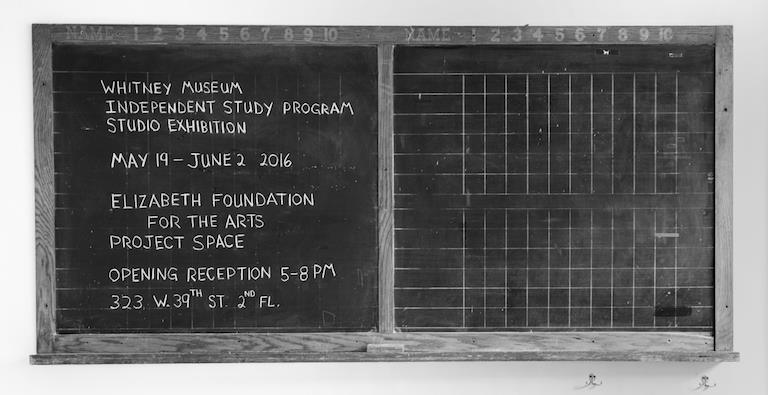 NAME 1 2 3 4 5 6 7 8 9 10
NAME 1 2 3 4 5 6 7 8 9 10
WHITNEY MUSEUM
INDEPENDENT STUDY PROGRAM
STUDIO EXHIBITION
MAY 19 – JUNE 2 2016
ELIZABETH FOUNDATION
FOR THE ARTS
PROJECT SPACE
OPENING RECEPTION 5–8 PM
323 W. 39TH ST. 2ND FL.